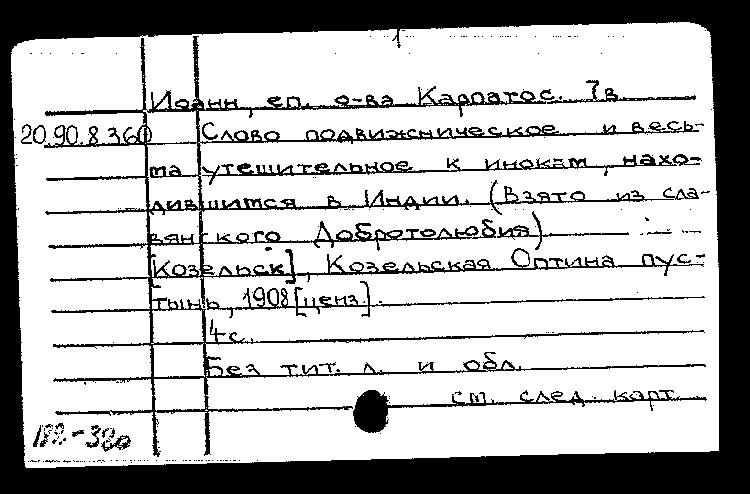 Иоанн, еп. о-ва Карпатос. 7в
20.90.8.360 Слово подвижническое и весь-
ма утешительное к инокам, нахо-
дившимся в Индии. (Взято из сла-
вянского Добротолюбия)
[Козельск], Козельская Оптина пус-
тынь, 1908 [ценз.].
4 с.
Без тит. л. и обл.
см. след. карт.